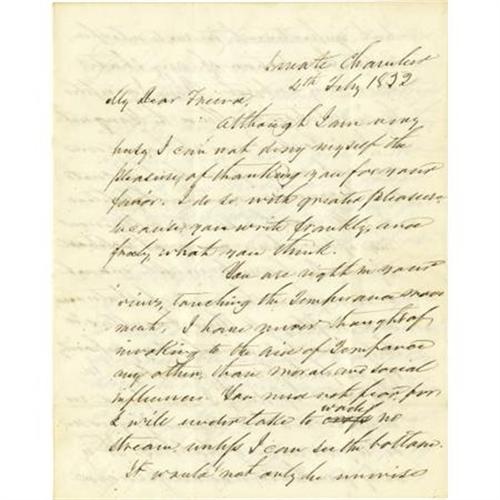 Senate Chamber
4th Feby 1832
My Dear Friend,
Although I am very
busy I can not deny myself the
pleasure of thanking you for your
favor. I do so with greater pleasure
because you write frankly, and
freely what you think.
You are right in your
views, touching the Temperance move
ment. I have never thought of
invoking to the aid of Temperance
any other, than moral and social
influences. You need not fear, for
I will under take to wade no
stream unless I can see the bottom.
It would not only be unwise